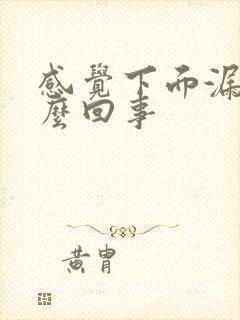 感覺下而漏
麼回事
黃胄